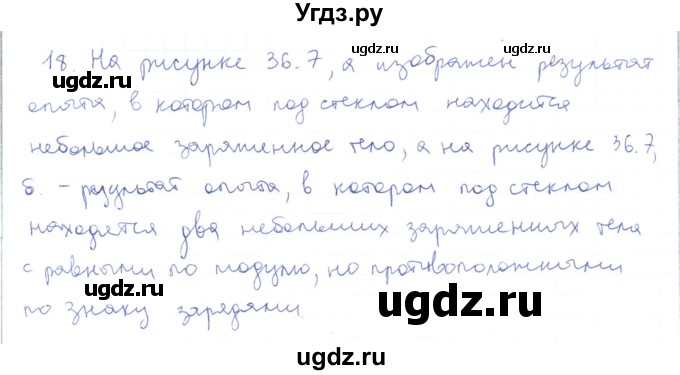 Угдз.ру
18. На рисунке 36.7, а изображен результат
опыта, в котором под стеклом находится
небольшое заряженное тело, а на рисунке 36.7,
б. - результат опыта, в котором под стеклом
находятся два небольших заряженных тела
с равными по модулю, но противоположными
по знаку зарядами.
ugdz.ru
ugdz.ru
ugdz.ru
ugdz.ru
ugdz.ru
ugdz.ru
ugdz.ru
ugdz.ru
ugdz.ru